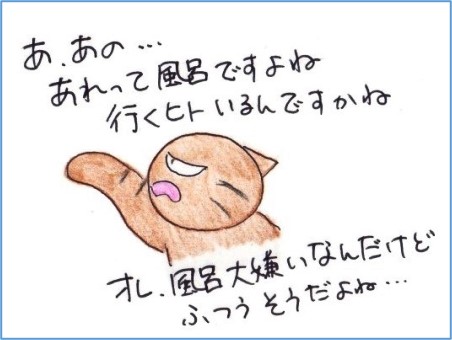 あ、あの…
あれって風呂ですよね
行くヒトいるんですかね
オレ、風呂大嫌いなんだけど
ふつうそうだよね…